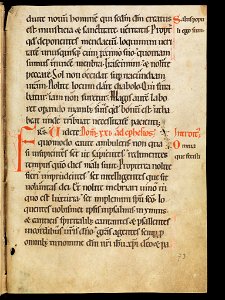 duite novum hominem qui secdm dm creatus
est in iusticia & sanctitate veritatis. Propt
qd deponentes mendacium loquimini veri
tate unusquisq; cum proximo suo quoniam
sumus invicem membra. Irascimini & nolite
peccare. Sol non occidat sup iracundiam
vram. Nolite locum dare diabolo. Qui fura
batur iam non furetur. Magis autem labo
ret opando manib; suis qd bonum est ut ha
beat unde tribuat necessitatē pacienti.
Fres. Videte Dom. xxi. ad ephesios.
quomodo caute ambuletis non qua
si insipientes set ut sapientes redimentes
tempus qm dies mali sunt. Propterea nolite
fieri imprudentes set intelligentes que sit
voluntas dei. Et nolite inebriari vino in
quo est luxuria set implemini spu sco lo
quentes vobismet ipsis in psalmis & ymnis
& canticis spiritalib; cantantes & psallentes
in cordibus vris dno. gras agentes semp p
omnib; in nomine dni nri ihu xpi deo & pa
Salus populi
ego sum
Introit
Omnia
que fecisti
73